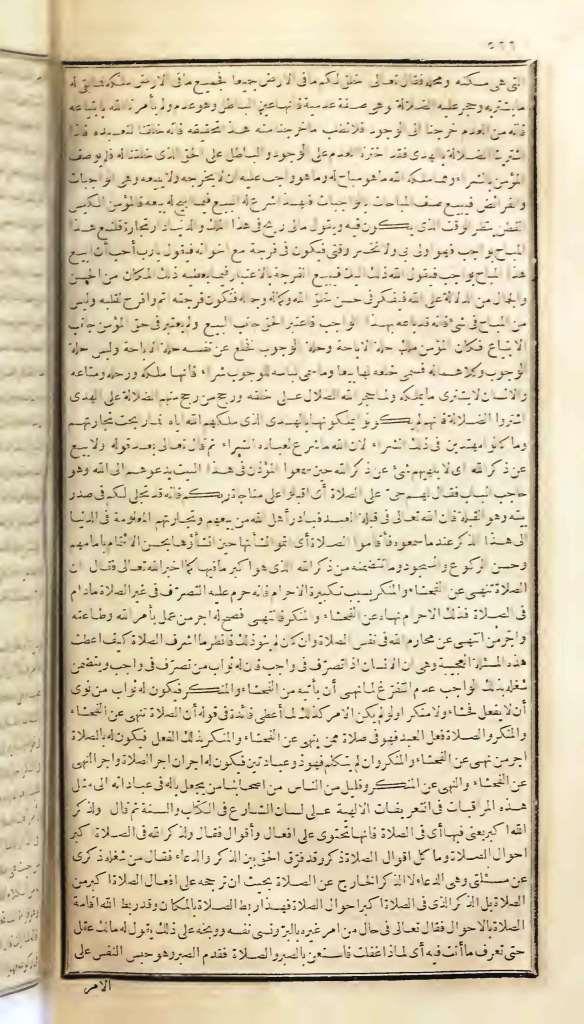 التى هى مسكنه ومحله فقال تعالى خلق لكم ما فى الارض جميعا فجميع ما فى الارض ملكه فما بقى له
ما يشتريه وحجر عليه الضلالة وهى صفة عدمية فانها عين الباطل وهو عدم ولم يأمره الله بابتياعه
فانه من العدم خرجنا الى الوجود فلا نطلب ما خرجنا منه هذا تحقيقه فانه خلقنا لنعبده فاذا
اشترينا الضلالة بالهدى فقد اخترنا العدم على الوجود والباطل على الحق الذى خلقنا له فلم يوصف
المؤمن بالشراء وما ملكه الله ما هو مباح له وما هو واجب عليه ان لا يخرجه ولا يبيعه وهى الواجبات
والفرائض فيبيع صنف المباحات بالواجبات فهذا شرع له البيع فيما أبيح له بيعه فالمؤمن الكيس
الفطن ينظر الوقت الذى يكون فيه ويقول مالى ربح فى هذا الملك والدنيا دار تجارة فلنبع هذا
المباح بواجب فهو أولى بى ولا نخسر وقتى فيكون فى فرجة مع اخوانه فيقول يا رب أحب أن أبيع
هذا المباح بواجب فيقول الله ذلك اليك فيبيع الفرجة بالاعتبار فيما يعطيه ذلك المكان من الحسن
والجمال من الدلالة على الله فيفكر فى حسن خلق الله وكماله وجماله فتكون فرجته أتم وافرح لقلبه وليس
من المباح فى شئ فانه قد باعه بهذا الواجب فاعتبر الحق جانب البيع ولم يعتبر فى حق المؤمن جانب
الابتياع فكان المؤمن ملك حلة الاباحة وحلة الوجوب فخلع عن نفسه حلة الاباحة وليس حلة
الوجوب وكلاهما له فسمى خلعه لها بيعا وما سمى لباسه للوجوب شراء فانها ملكه ورحله ومتاعه
والانسان لا يشترى ما يملكه ولما حجر الله الضلال على خلقه ورجح من رجح منهم الضلالة على الهدى
اشتروا الضلالة فانهم لم يكونوا يملكونها بالهدى الذى ملكهم الله اياه فما ربحت تجارتهم
وما كانوا مهتدين فى ذلك الشراء لان الله ما شرع لعباده الشراء ثم قال تعالى بعد قوله ولا بيع
عن ذكر الله اى لا يلهيهم شئ عن ذكر الله حين سمعوا المؤذن فى هذا البيت يدعوهم الى الله وهو
حاجب الباب فقال لهم حى على الصلاة أى اقبلوا على مناجاة ربكم فانه قد تجلى لكم فى صدر
بيته وهو القبلة فان الله تعالى فى قبلة العبد فبادر أهل الله من بيعهم وتجارتهم المعلومة فى الدنيا
الى هذا الذكر عند ما سمعوه فأقاموا الصلاة أى أتموا نشأتها حين انشأوها بحسن الائتمام بامامهم
وحسن الركوع والسجود وما تتضمنه من ذكر الله الذى هو اكبر ما فيها كما اخبر الله تعالى فقال ان
الصلاة تنهى عن الفحشاء والمنكر بسبب تكبيرة الاحرام فانه حرم عليه التصرف فى غير الصلاة مادام
فى الصلاة فذلك الاحرام نهاه عن الفحشاء والمنكر فانتهى فصح له اجر من عمل بأمر الله وطاعته
واجر من انتهى عن محارم الله فى نفس الصلاة وان كان لم ينو ذلك فانظر ما اشرف الصلاة كيف اعطت
هذه المسئلة العجيبة وهى ان الانسان اذا تصرف فى واجب فان له ثواب من تصرف فى واجب ويتضمن
شغله بذلك الواجب عدم التفرغ لما نهى أن يأتيه من الفحشاء والمنكر فيكون له ثواب من نوى
أن لا يفعل فحشاء ولا منكرا ولو لم يكن الامر كذلك لما أعطى فائدة فى قوله أن الصلاة تنهى عن الفحشاء
والمنكر والصلاة فعل العبد فهو فى صلاة ممن ينهى عن الفحشاء والمنكر بذلك الفعل فيكون له بالصلاة
اجر من نهى عن الفحشاء والمنكر وان لم يتكلم فهو ذو عبادتين فيكون له اجران اجر الصلاة واجر النهى
عن الفحشاء والنهى عن المنكر وقليل من الناس من اصحابنا من يجعل باله فى عباداته الى مثل
هذه المراقبات فى التعريفات الالهية على لسان الشارع فى الكتاب والسنة ثم قال ولذكر
الله اكبر يعنى فيها أى فى الصلاة فانها تحتوى على افعال وأقوال فقال ولذكر الله فى الصلاة اكبر
احوال الصلاة وما كل اقوال الصلاة ذكر وقد فرق الحق بين الذكر والدعاء فقال من شغله ذكرى
عن مسئلتى وهى الدعاء لا الذكر الخارج عن الصلاة بحيث ان ترجحه على افعال الصلاة اكبر من
الصلاة بل الذكر الذى فى الصلاة اكبر احوال الصلاة فهذا ربط الصلاة بالمكان وقد ربط الله اقامة
الصلاة بالاحوال فقال تعالى فى حال من امر غيره بالبر ونسى نفسه ووبخه على ذلك بقوله له مالك عقل
حتى تعرف ما أنت فيه أى لماذا غفلت فاستعن بالصبر والصلاة فقدم الصبر وهو حبس النفس على
الامر